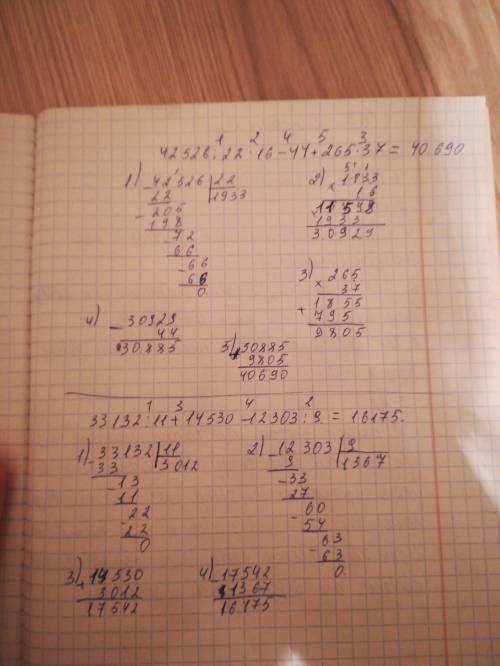 1 2 4 5 3
42526:22·16-44+265·37=40690.
1) -42526 |22
22 |1933
-205
198
-72
66
-66
66
0
2) ×1933
16
11598
1933
30929
3) ×265
37
+1855
795
9805
4) -30929
44
30885
5) +30885
9805
40690
1 3 4 2
33132:11+14530-12303:9=16175.
1) -33132 |11
33 |3012
-13
11
22
-22
0
2) -12303 |9
9 |1367
-33
27
-60
54
-63
63
0.
3) +14530
3012
17542
4) -17542
1367
16175